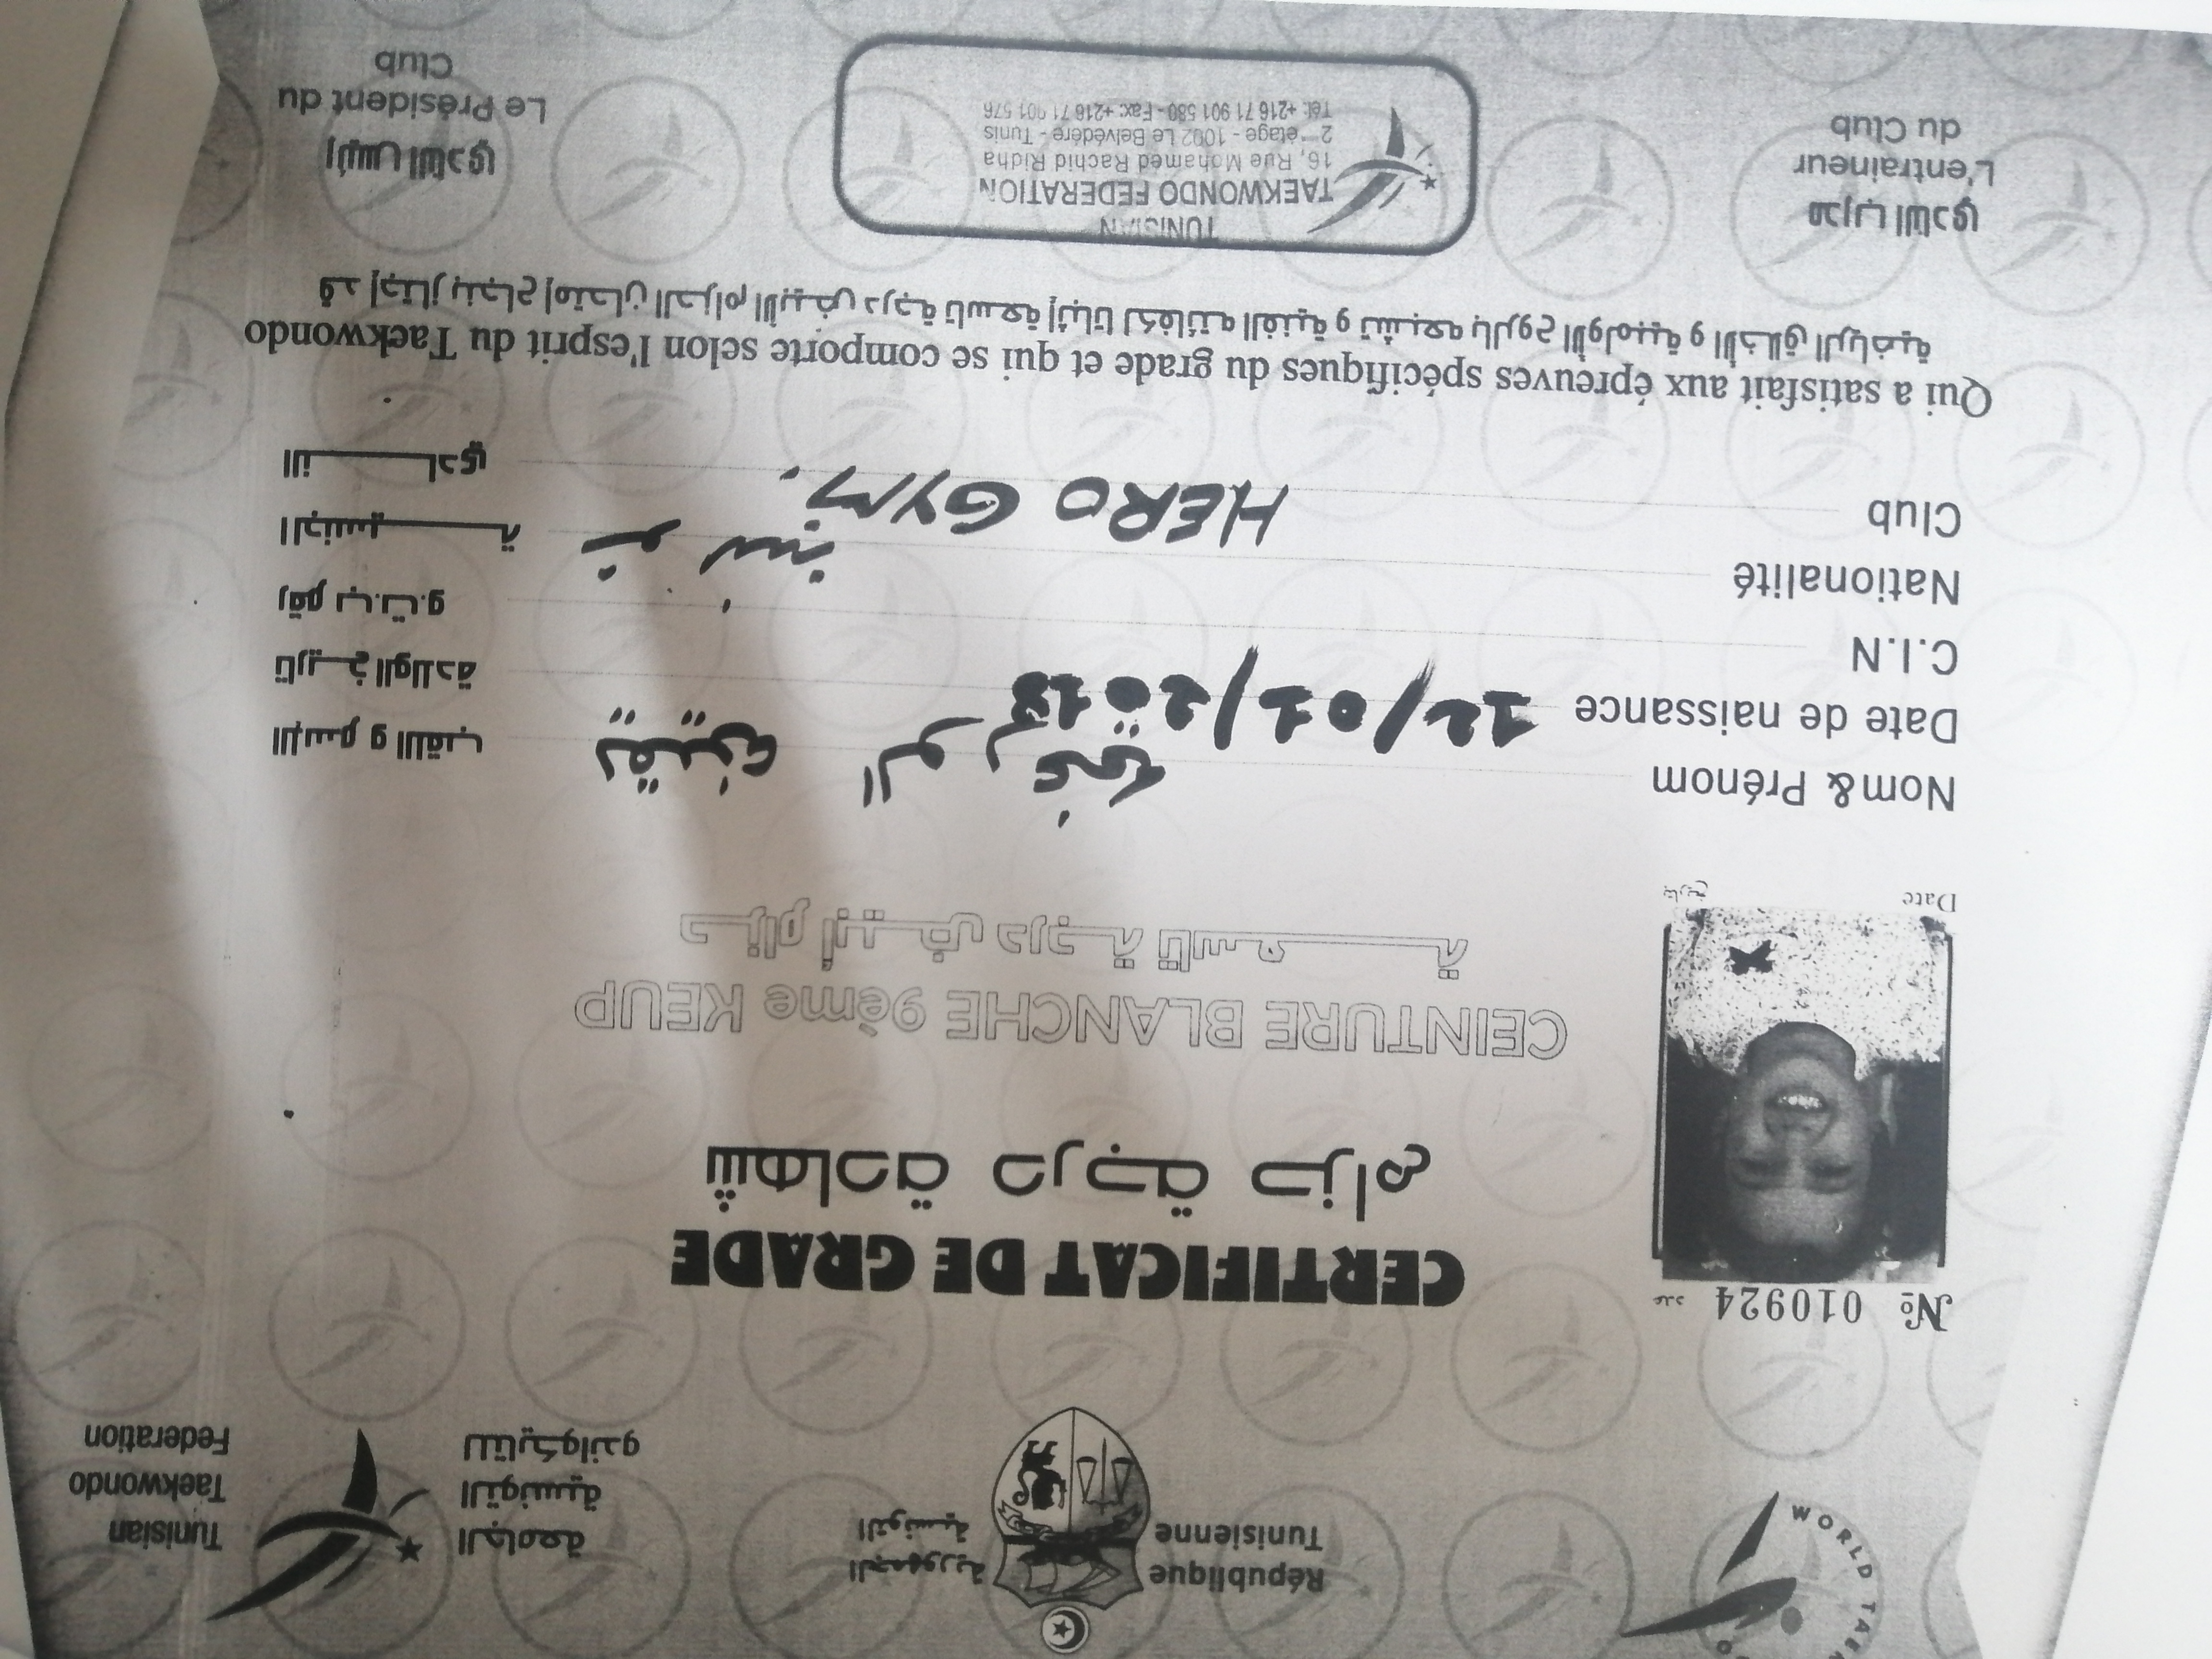 WORLD TAEK
République
Tunisienne
الجمهورية
التونسية
الجامعة
التونسية
للتايكواندو
Tunisian
Taekwondo
Federation
№ 010924 عدد
CERTIFICAT DE GRADE
شهادة درجة حزام
CEINTURE BLANCHE 9ème KEUP
حزام أبيض درجة تاسعة
Date تاريخ
Nom& Prénom الإسم و اللقب
Date de naissance 12/01/2013 تاريخ الولادة
C.I.N رقم ب.ت.و
Nationalité تونسية الجنسية
Club HERO GYM. النادي
Qui a satisfait aux épreuves spécifiques du grade et qui se comporte selon l'esprit du Taekwondo
قد إجتاز بنجاح إمتحان الحزام الأبيض درجة تاسعة إثباتا لكفائته الفنية و تشبعه بالروح الأولمبية و الأخلاق الرياضية
مدرب النادي
L'entraineur
du Club
TUNISIAN
TAEKWONDO FEDERATION
16, Rue Mohamed Rachid Ridha
2ème étage - 1002 Le Belvédère - Tunis
Tél: +216 71 901 580 - Fax: +216 71 901 576
رئيس النادي
Le Président du
Club